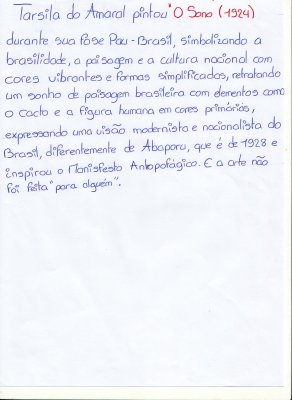 Tarsila do Amaral pintou "O Sono (1924)
durante sua fase Pau-Brasil, simbolizando a
brasilidade, a paisagem e a cultura nacional com
cores vibrantes e formas simplificadas, retratando
um sonho de paisagem brasileira com elementos como
o cacto e a figura humana em cores primárias,
expressando uma visão modernista e nacionalista do
Brasil, diferentemente de Abaporu, que é de 1928 e
inspirou o Manifesto Antopofágico. E a arte não
foi feita "para alguém".